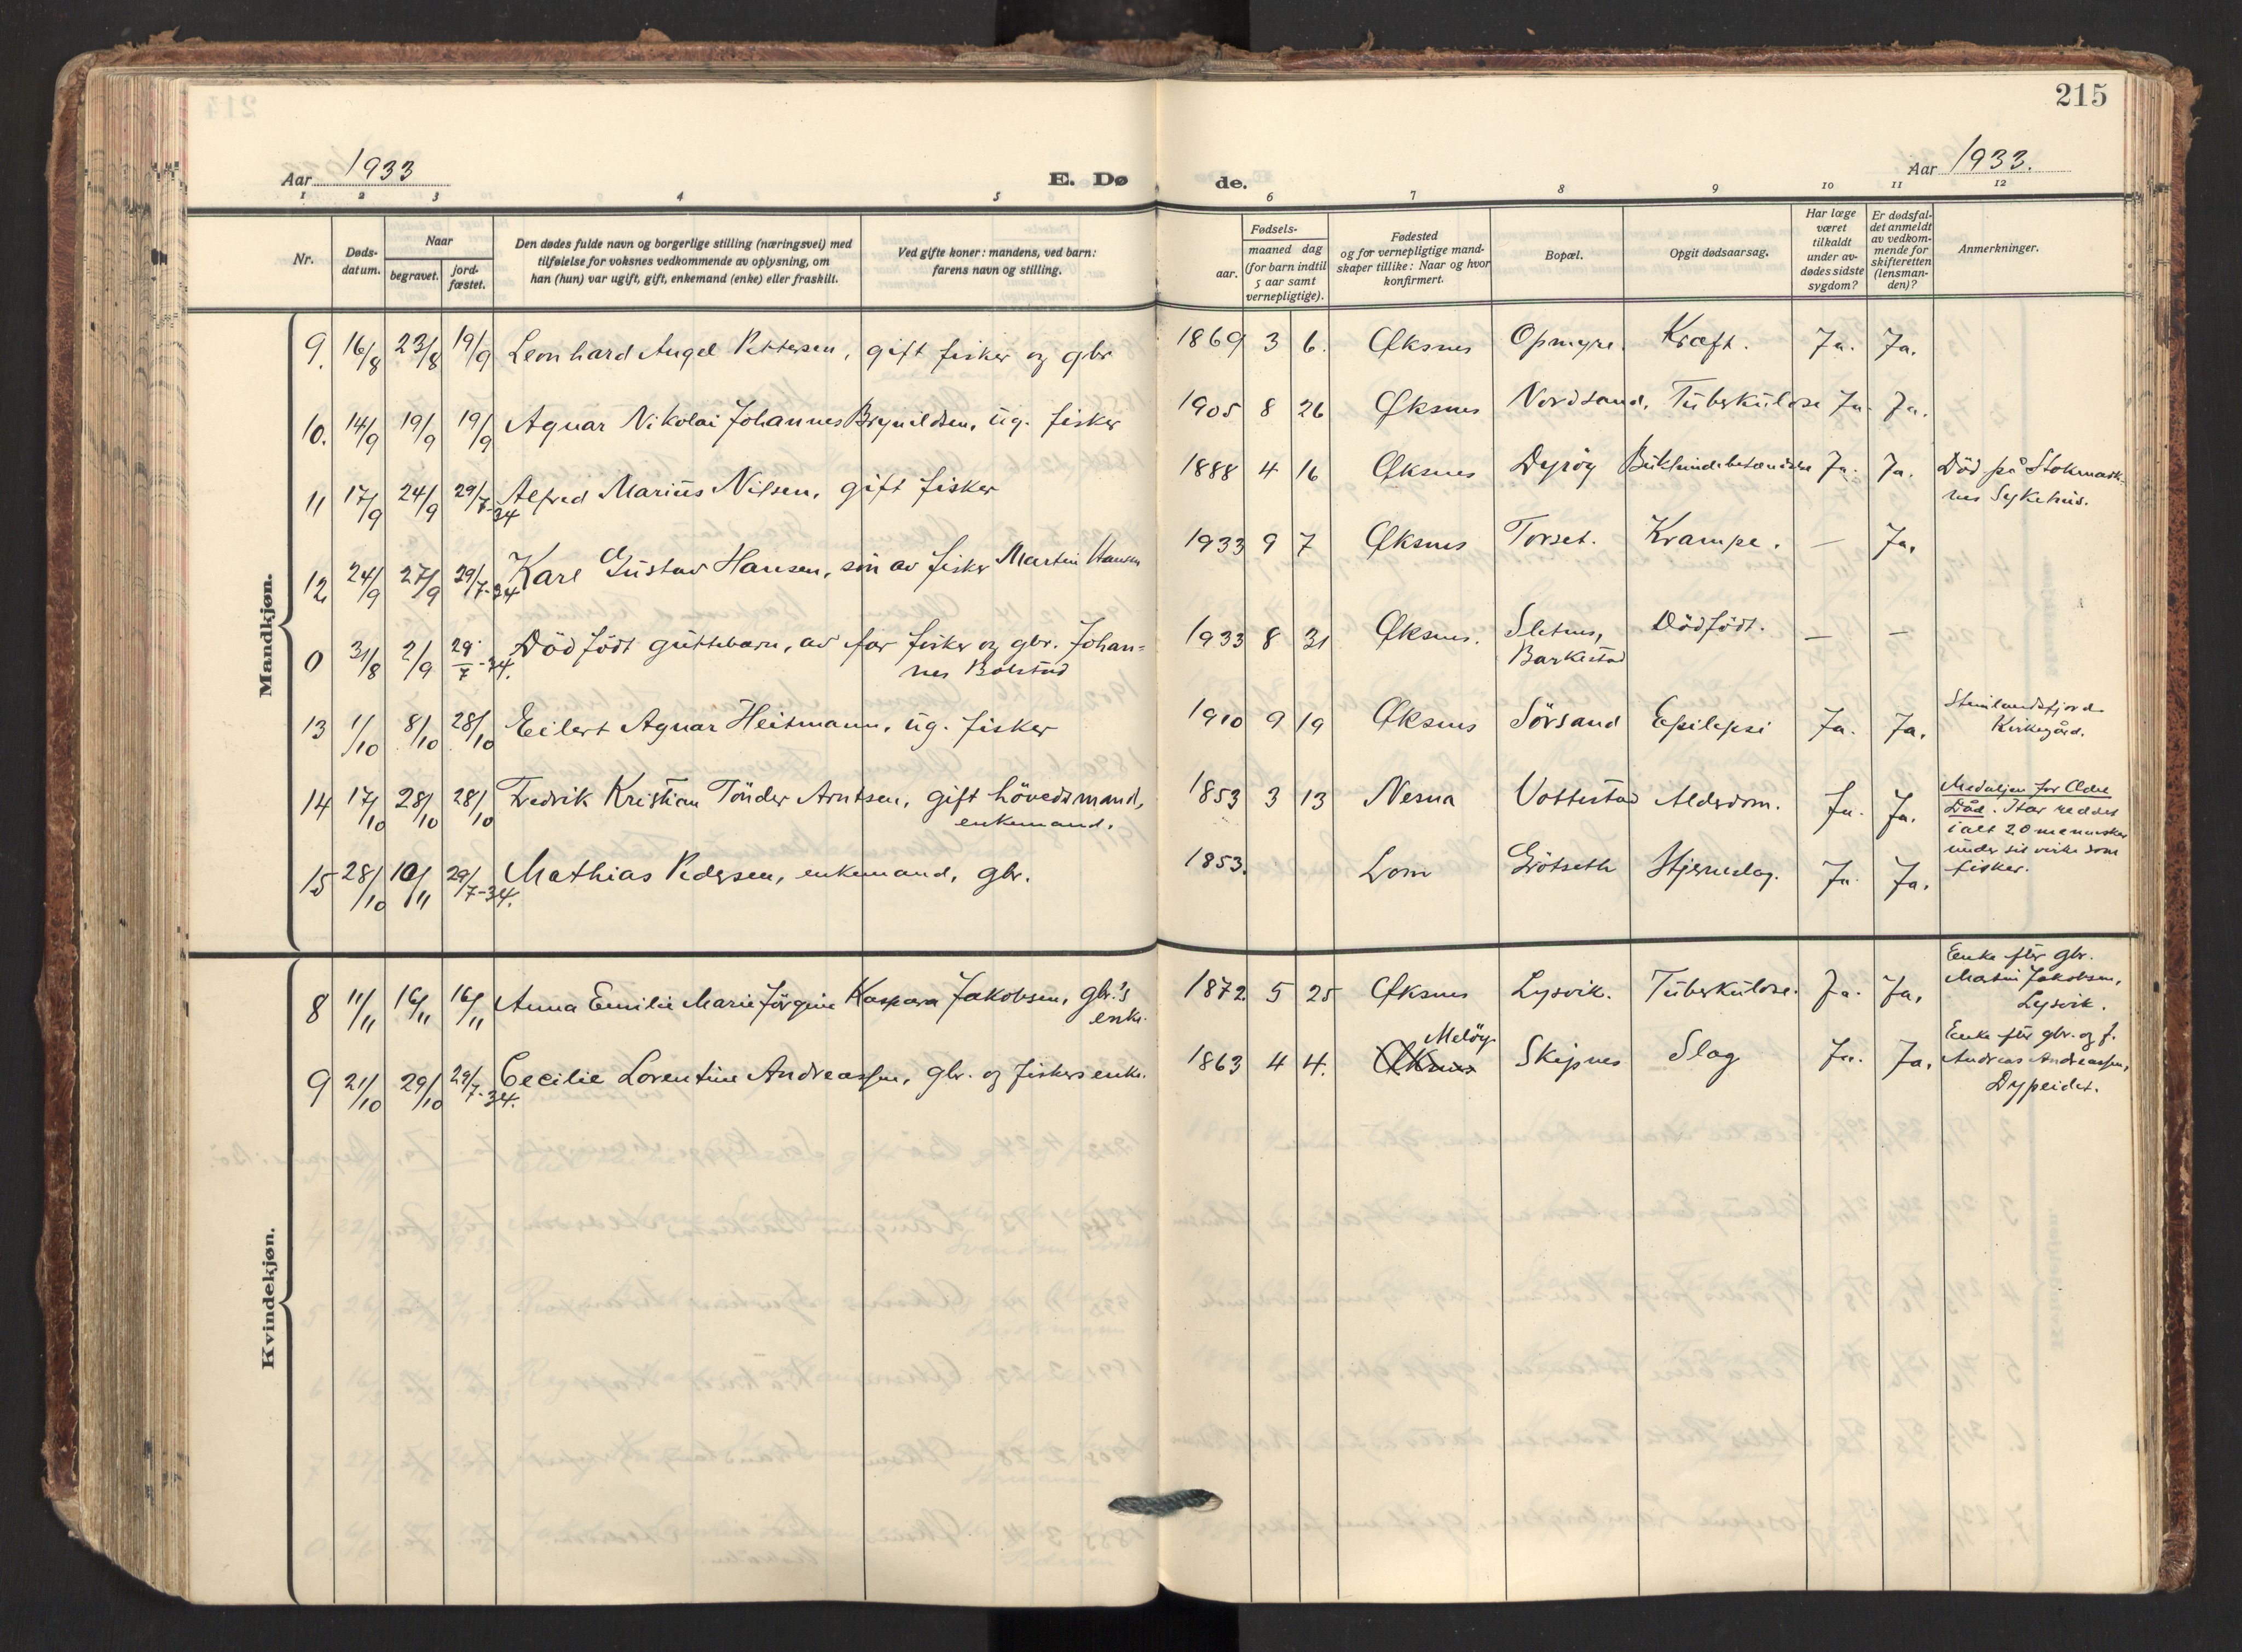 215
Aar 1933
E. Dø
de.
Aar 1933.
1 2 3 4 5 6 7 8 9 10 11 12
Nr.
Døds-
datum.
Naar
begravet.
jord-
fæstet.
Den dødes fulde navn og borgerlige stilling (næringsvei) med
tilføielse for voksnes vedkommende av oplysning, om
han (hun) var ugift, gift, enkemand (enke) eller fraskilt.
Ved gifte koner: mandens, ved barn:
farens navn og stilling.
Fødsels-
aar.
maaned dag
(for barn indtil
5 aar samt
vernepligtige).
Fødested
og for vernepligtige mand-
skaper tillike: Naar og hvor
konfirmert.
Bopæl.
Opgit dødsaarsag.
Har læge
været
tilkaldt
under av-
dødes sidste
sygdom?
Er dødsfal-
det anmeldt
av vedkom-
mende for
skifteretten
(lensman-
den)?
Anmerkninger.
Mandkjøn.
9. 16/8 23/8 19/9 Leonhard Angel Pettersen, gift fisker og gbr 1869 3 6. Øksnes Opmyre. Kræft. Ja. Ja.
10. 14/9 19/9 19/9 Agnar Nikolai Johannes Brynildsen, ug. fisker 1905 8 26 Øksnes Nordsand. Tuberkulose Ja. Ja.
11 17/9 24/9 29/7-34 Alfred Marius Nilsen, gift fisker 1888 4 16 Øksnes Dyröy Bukhindebetændelse Ja. Ja. Död på Stokmark-
nes Sykehus.
12 24/9 27/9 29/7-34 Karl Gustav Hansen, sön av fisker Martin Hansen 1933 9 7 Øksnes Torset. Krampe. — Ja.
0 31/8 2/9 29/7-34. Dödfödt guttebarn, av far fisker og gbr. Johan-
nes Bolstad 1933 8 31 Øksnes. Sletnes,
Barkestad Dödfödt. — —
13 1/10 8/10 28/10 Eilert Agnar Heitmann, ug. fisker 1910 9 19 Øksnes Sörsand Epilepsi Ja. Ja. Steinlandsfjord
Kirkegård.
14 17/10 28/10 28/10 Fredrik Kristian Tönder Arntsen, gift hövedsmand,
enkemand. 1853 3 13 Nesna Vottestad Alderdom. Ja. Ja. Medaljen for Ædel
Dåd. Har reddet
ialt 20 mennesker
under sit virke som
fisker.
15 28/10 10/11 29/7-34. Mathias Pedersen, enkemand, gbr. 1853. Lom Grötseth Hjerneslag. Ja. Ja.
Kvindekjøn.
8 11/11 16/11 16/11 Anna Emilie Marie Jörgine Kaspara Jakobsen, gbr.'s
enke. 1872 5 25 Øksnes Lysvik. Tuberkulose. Ja. Ja. Enke efter gbr.
Martin Jakobsen,
Lysvik.
9 21/10 29/10 29/7-34. Cecilie Lorentine Andreassen, gbr. og fiskers enke. 1863 4 4. Øksnes Melöy. Skipnes Slag Ja. Ja. Enke efter gbr. og f.
Andreas Andreassen,
Dypeidet.